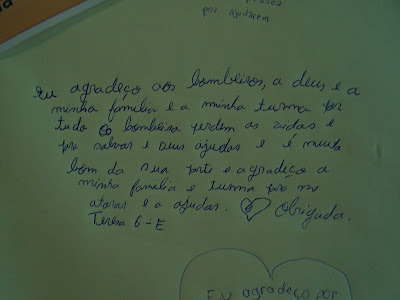 pessoa
por ajudarem
Eu agradeço aos bombeiros, a deus e a
minha familia e a minha turma por
tudo os bombeiros perdem as vidas e
pra salvar e seus ajudas e é muito
bom da sua parte e agradeço a
minha familia e turma pra me
aturar e a ajudas. Obrigada.
Teresa 6-E
Eu agradeço por